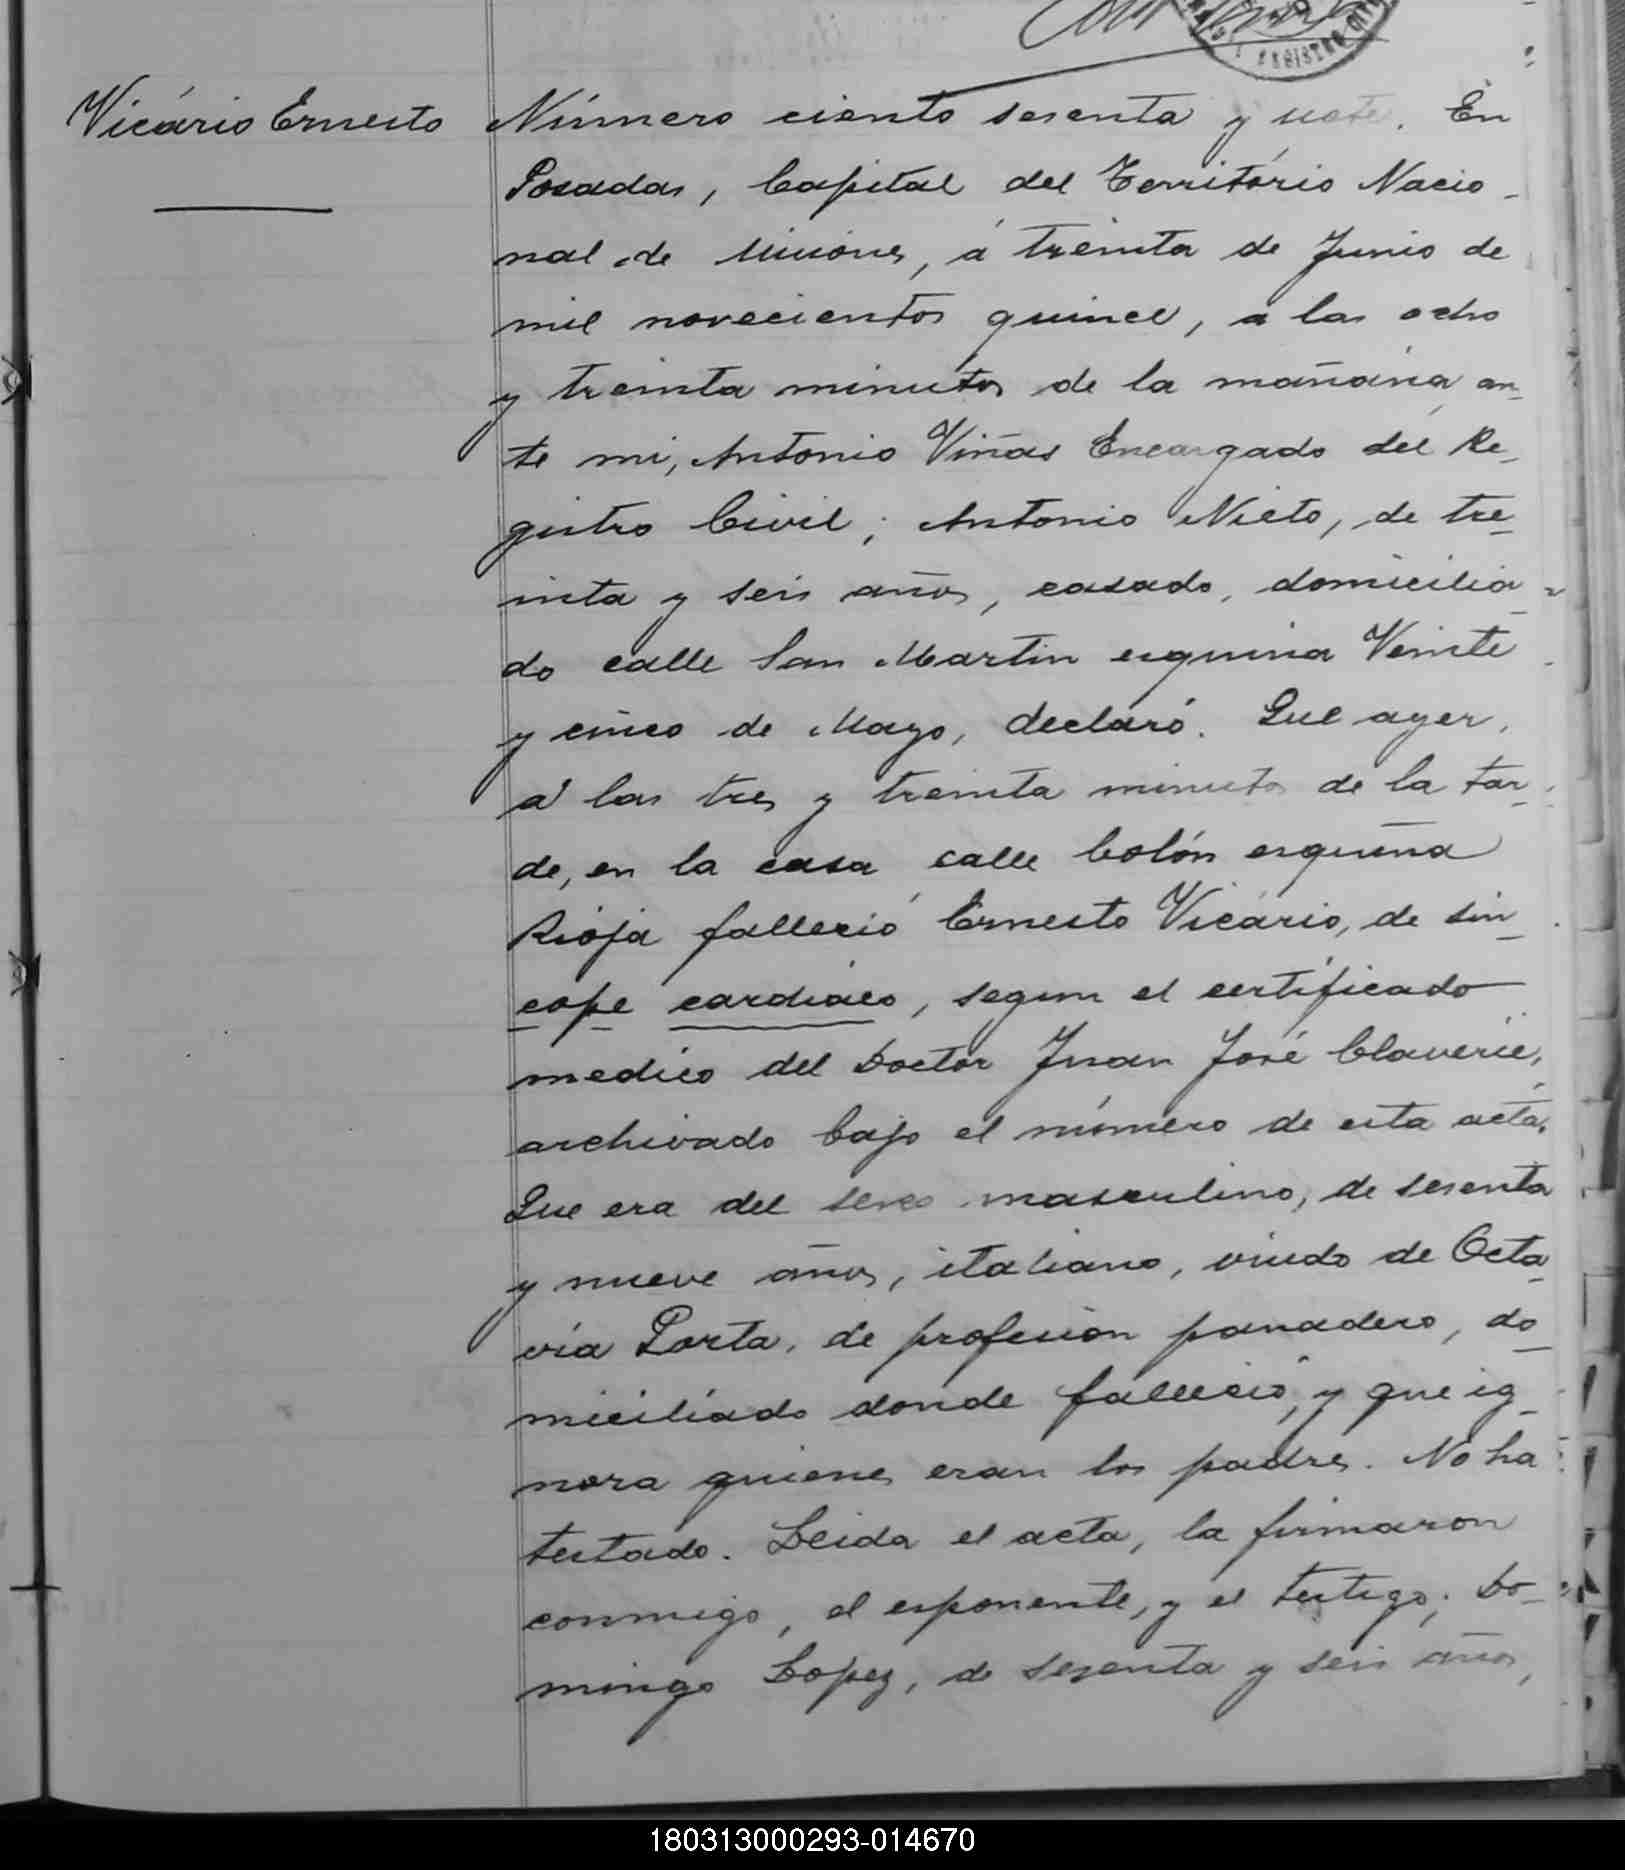 REGISTRO CIVIL
Vicário Ernesto
Número ciento sesenta y siete. En
Posadas, Capital del Território Nacio-
nal de Misiones, á treinta de Junio de
mil novecientos quince, a las ocho
y treinta minutos de la mañana, an-
te mi, Antonio Viñas Encargado del Re-
gistro Civil; Antonio Nieto, de tre-
inta y seis años, casado, domicilia-
do calle San Martin esquina Veinte
y cinco de Mayo, declaró. Que ayer,
á las tres y treinta minutos de la tar-
de, en la casa calle Colón esquina
Rioja falleció Ernesto Vicário, de sin-
cope cardiáco, segun el certificado
medico del Doctor Juan José Claverie,
archivado bajo el número de esta acta.
Que era del sexo masculino, de sesenta
y nueve años, italiano, viudo de Octa-
via Porta, de profesión panadero, do-
miciliado donde falleció, y que ig-
nora quienes eran los padres. No ha
testado. Leida el acta, la firmaron
conmigo, el esponente, y el testigo; Do-
mingo Lopez, de sesenta y seis años,
180313000293-014670